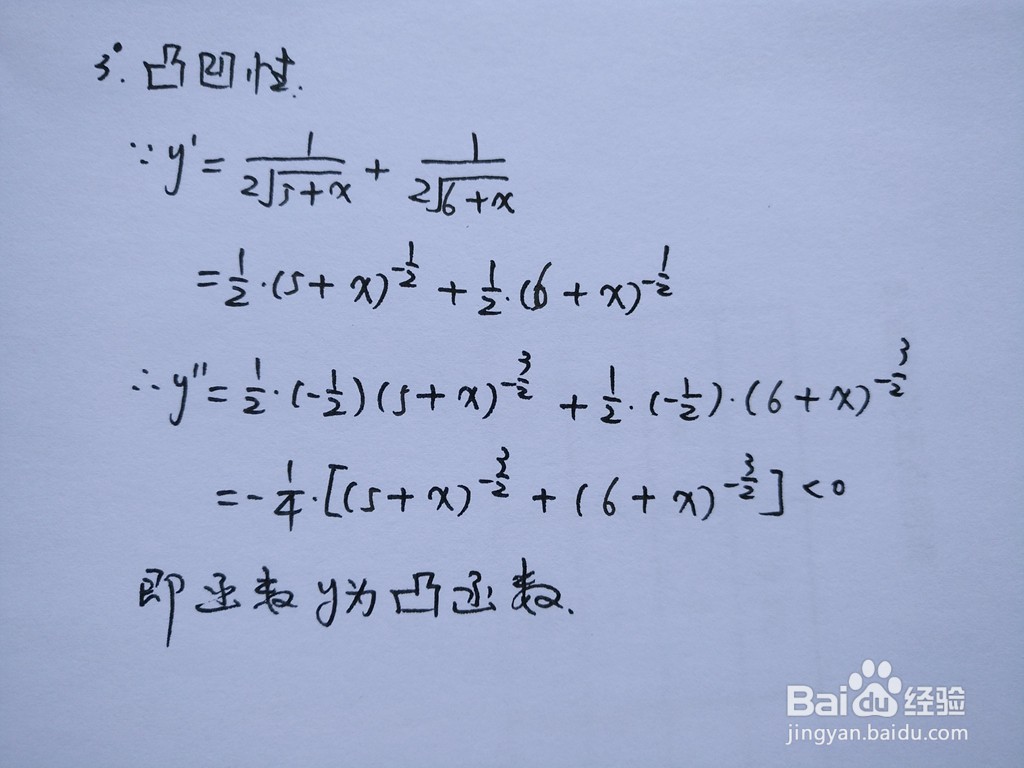 3°. 凸凹性.
∵ y' = 1/(2√(5+x)) + 1/(2√(6+x))
= 1/2·(5+x)^(-1/2) + 1/2·(6+x)^(-1/2)
∴ y'' = 1/2·(-1/2)(5+x)^(-3/2) + 1/2·(-1/2)·(6+x)^(-3/2)
= -1/4·[(5+x)^(-3/2) + (6+x)^(-3/2)] < 0
即函数y为凸函数.
Baidu经验
jingyan.baidu.com